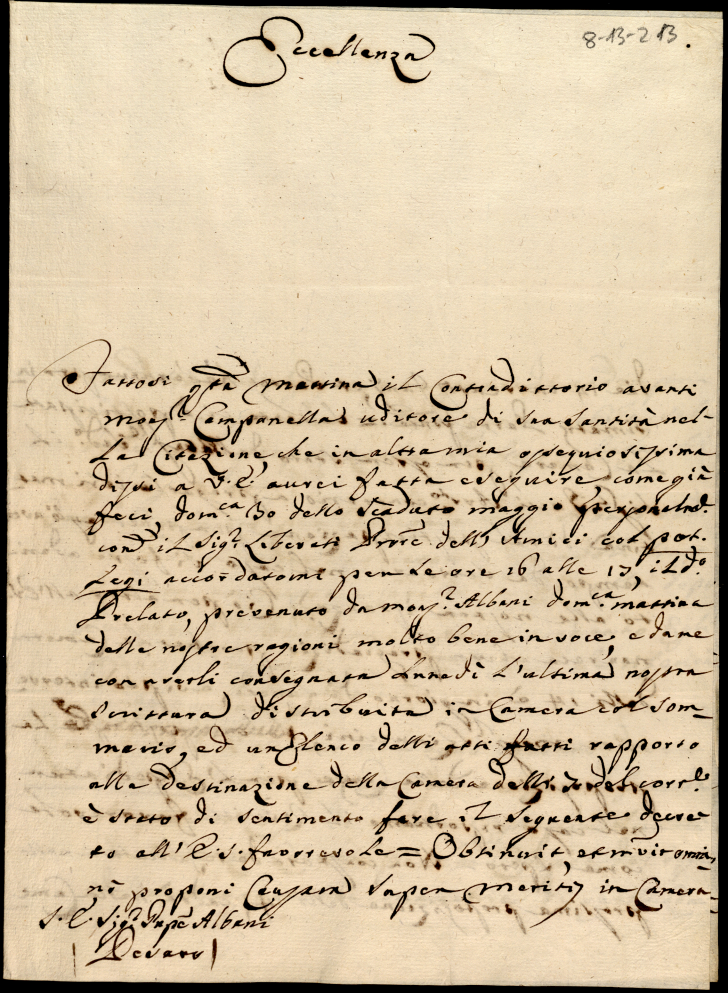 8-13-213.
Eccellenza
Fattosi qsta mattina il Contradittorio avanti
Monsr. Campanella uditore di sua Santità nel-
la Citazione, che in altra mia ossequiosissima
dissi a V. E. aurei fatta eseguire come già
feci, domca 30 dello scaduto maggio
con il Sigr. Liberati dell' Amici col pot.
Legi accordatomi per le ore 16 alle 17, il do.
Prelato, prevenuto da monsr. Albani domca. mattina
delle nostre ragioni molto bene in voce, e da me
con averli consegnata Lunedì l'ultima nostra
Scrittura distribuita in Camera col som-
mario, ed un Elenco delli atti fatti rapporto
alla destinazione della Camera delli del corre.
è stato di sentimento fare il seguente decre
to all' E. S. favorevole = Obtinuit, et
proponi Causam super meritis in Camera-
S. E. Sigr. Albani
Pesaro